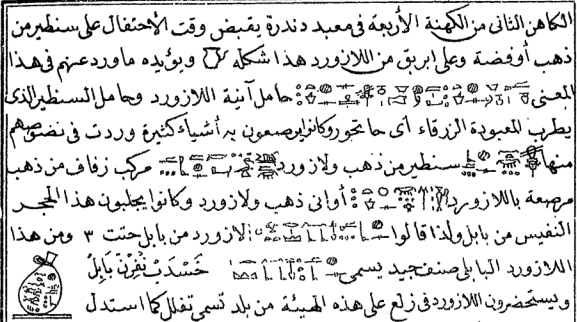 الكاهن الثانى من الكهنة الأربعة فى معبد دندرة يقبض وقت الاحتفال على سنطير من
ذهب أو فضة وعلى ابريق من اللازورد هذا شكله ويؤيده ما ورد عنهم فى هذا
المعنى حامل آنية اللازورد وحامل السنطير الذى
يطرب المعبودة الزرقاء أى حاتحور وكانوا يصنعون به أشياء كثيرة وردت فى نصوصهم
منها سنطير من ذهب ولازورد مركب زفاف من ذهب
مرصعة باللازورد أوانى ذهب ولازورد وكانوا يجلبون هذا الحجر
النفيس من بابل ولذا قالوا لازورد من بابل حتت ٣ ومن هذا
اللازورد البابلى صنف جيد يسمى خَسْدَبْ نُفْرْنْ بَابِلُ
ويستحضرون اللازورد فى زلع على هذه الهيئة من بلد تسمى تفلل كما استدل